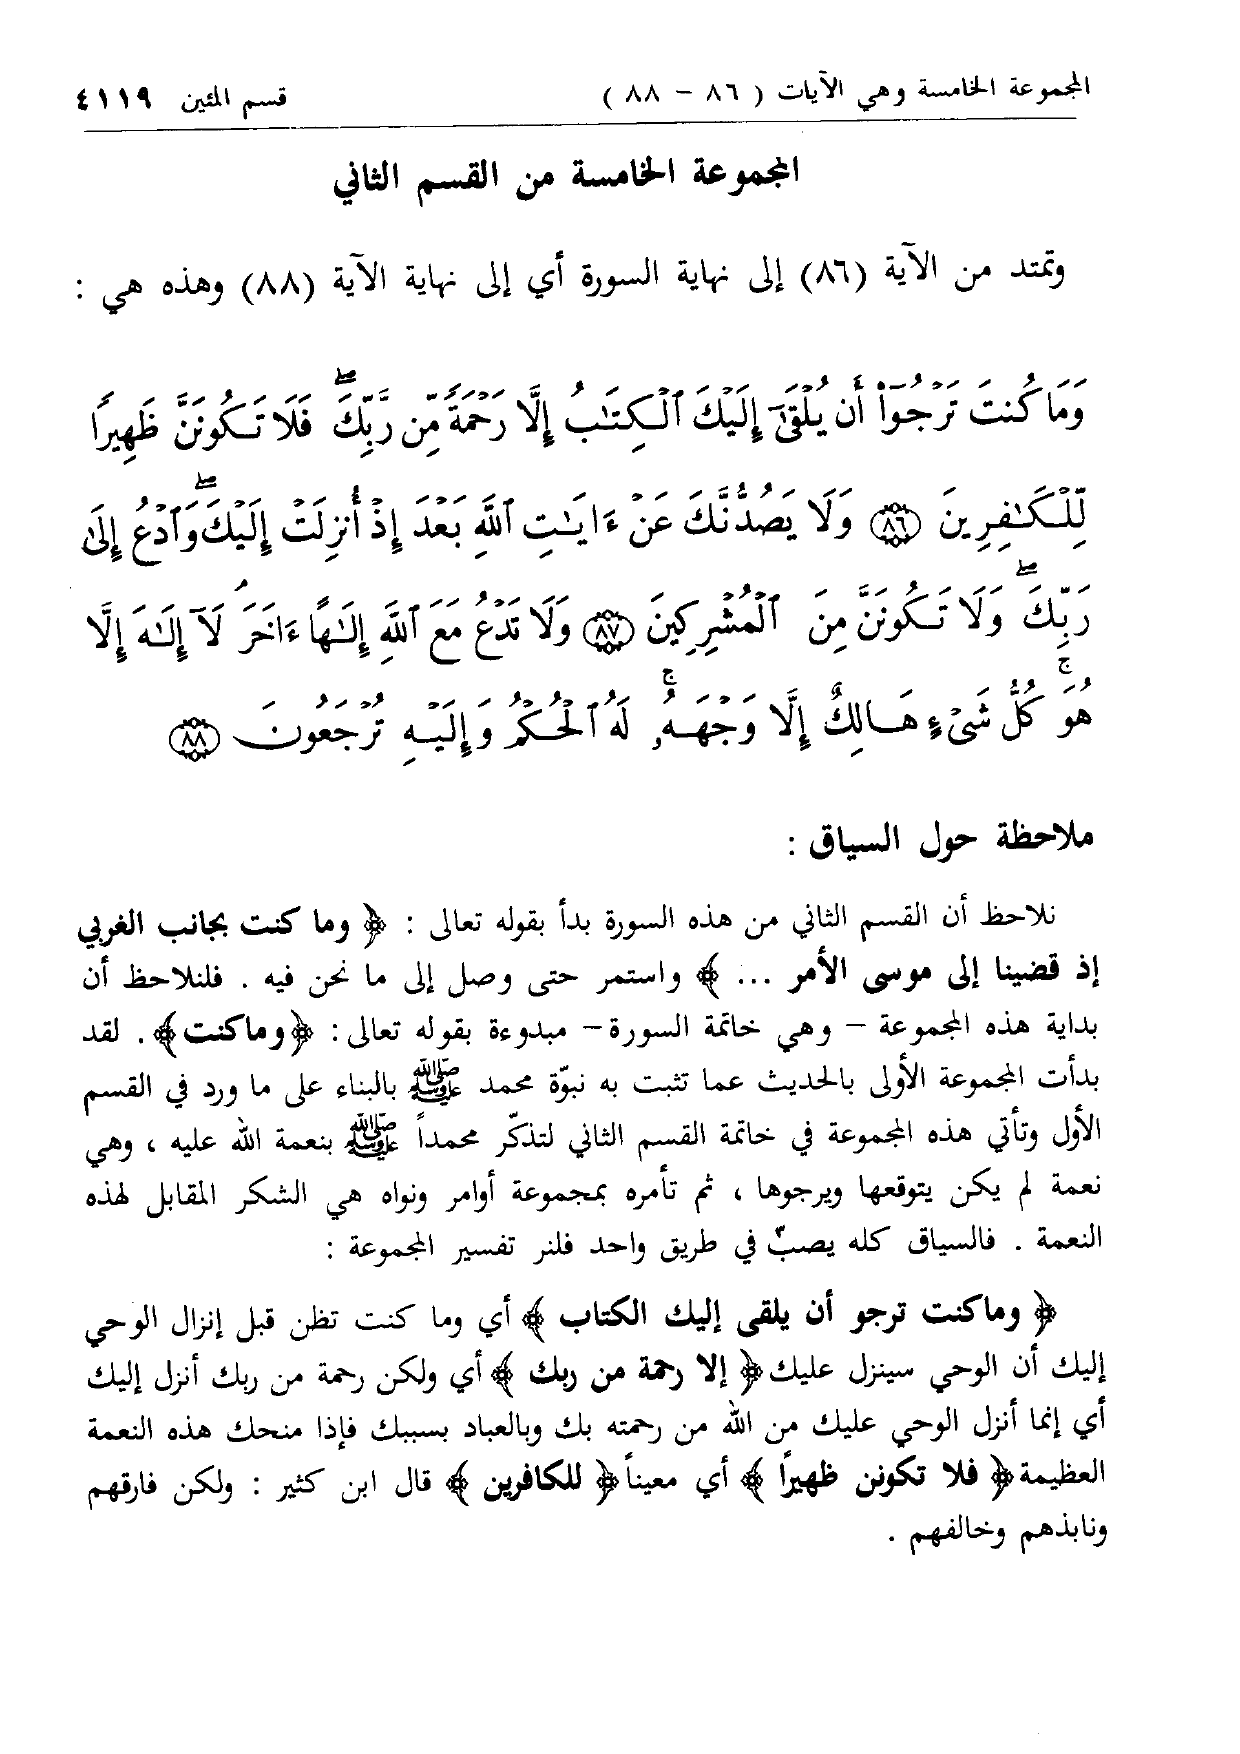 المجموعة الخامسة وهي الآيات ( ٨٦ – ٨٨ ) قسم المئين ٤١١٩
المجموعة الخامسة من القسم الثاني
وتمتد من الآية (٨٦) إلى نهاية السورة أي إلى نهاية الآية (٨٨) وهذه هي :
وَمَا كُنتَ تَرْجُوٓا۟ أَن يُلْقَىٰٓ إِلَيْكَ ٱلْكِتَـٰبُ إِلَّا رَحْمَةً مِّن رَّبِّكَ ۖ فَلَا تَكُونَنَّ ظَهِيرًا
لِّلْكَـٰفِرِينَ ﴿٨٦﴾ وَلَا يَصُدُّنَّكَ عَنْ ءَايَـٰتِ ٱللَّهِ بَعْدَ إِذْ أُنزِلَتْ إِلَيْكَ ۖ وَٱدْعُ إِلَىٰ
رَبِّكَ ۖ وَلَا تَكُونَنَّ مِنَ ٱلْمُشْرِكِينَ ﴿٨٧﴾ وَلَا تَدْعُ مَعَ ٱللَّهِ إِلَـٰهًا ءَاخَرَ ۘ لَآ إِلَـٰهَ إِلَّا
هُوَ ۚ كُلُّ شَىْءٍ هَالِكٌ إِلَّا وَجْهَهُۥ ۚ لَهُ ٱلْحُكْمُ وَإِلَيْهِ تُرْجَعُونَ ﴿٨٨﴾
ملاحظة حول السياق :
نلاحظ أن القسم الثاني من هذه السورة بدأ بقوله تعالى : ﴿ وما كنت بجانب الغربي
إذ قضينا إلى موسى الأمر ... ﴾ واستمر حتى وصل إلى ما نحن فيه . فلنلاحظ أن
بداية هذه المجموعة – وهي خاتمة السورة – مبدوءة بقوله تعالى : ﴿وما كنت﴾ . لقد
بدأت المجموعة الأولى بالحديث عما تثبت به نبوّة محمد ﷺ بالبناء على ما ورد في القسم
الأول وتأتي هذه المجموعة في خاتمة القسم الثاني لتذكّر محمداً ﷺ بنعمة الله عليه ، وهي
نعمة لم يكن يتوقعها ويرجوها ، ثم تأمره بمجموعة أوامر ونواه هي الشكر المقابل لهذه
النعمة . فالسياق كله يصبّ في طريق واحد فلنر تفسير المجموعة :
﴿ وما كنت ترجو أن يلقى إليك الكتاب ﴾ أي وما كنت تظن قبل إنزال الوحي
إليك أن الوحي سينزل عليك ﴿ إلا رحمة من ربك ﴾ أي ولكن رحمة من ربك أنزل إليك
أي إنما أنزل الوحي عليك من الله من رحمته بك وبالعباد بسببك فإذا منحك هذه النعمة
العظيمة ﴿ فلا تكونن ظهيراً ﴾ أي معيناً ﴿ للكافرين ﴾ قال ابن كثير : ولكن فارقهم
ونابذهم وخالفهم .